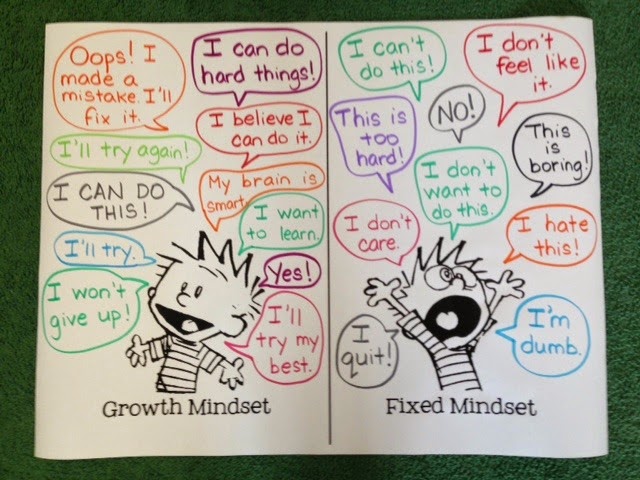 Oops! I
made a
mistake. I'll
fix it.
I can do
hard things!
I believe I
can do it.
I'll try again!
My brain is
smart.
I CAN DO
THIS!
I want
to learn.
I'll try.
Yes!
I won't
give up!
I'll
try my
best.
Growth Mindset
I can't
do this!
I don't
feel like
it.
NO!
This is
too
hard!
This
is
boring!
I don't
want to
do this.
I don't
care.
I hate
this!
I
quit!
I'm
dumb.
Fixed Mindset